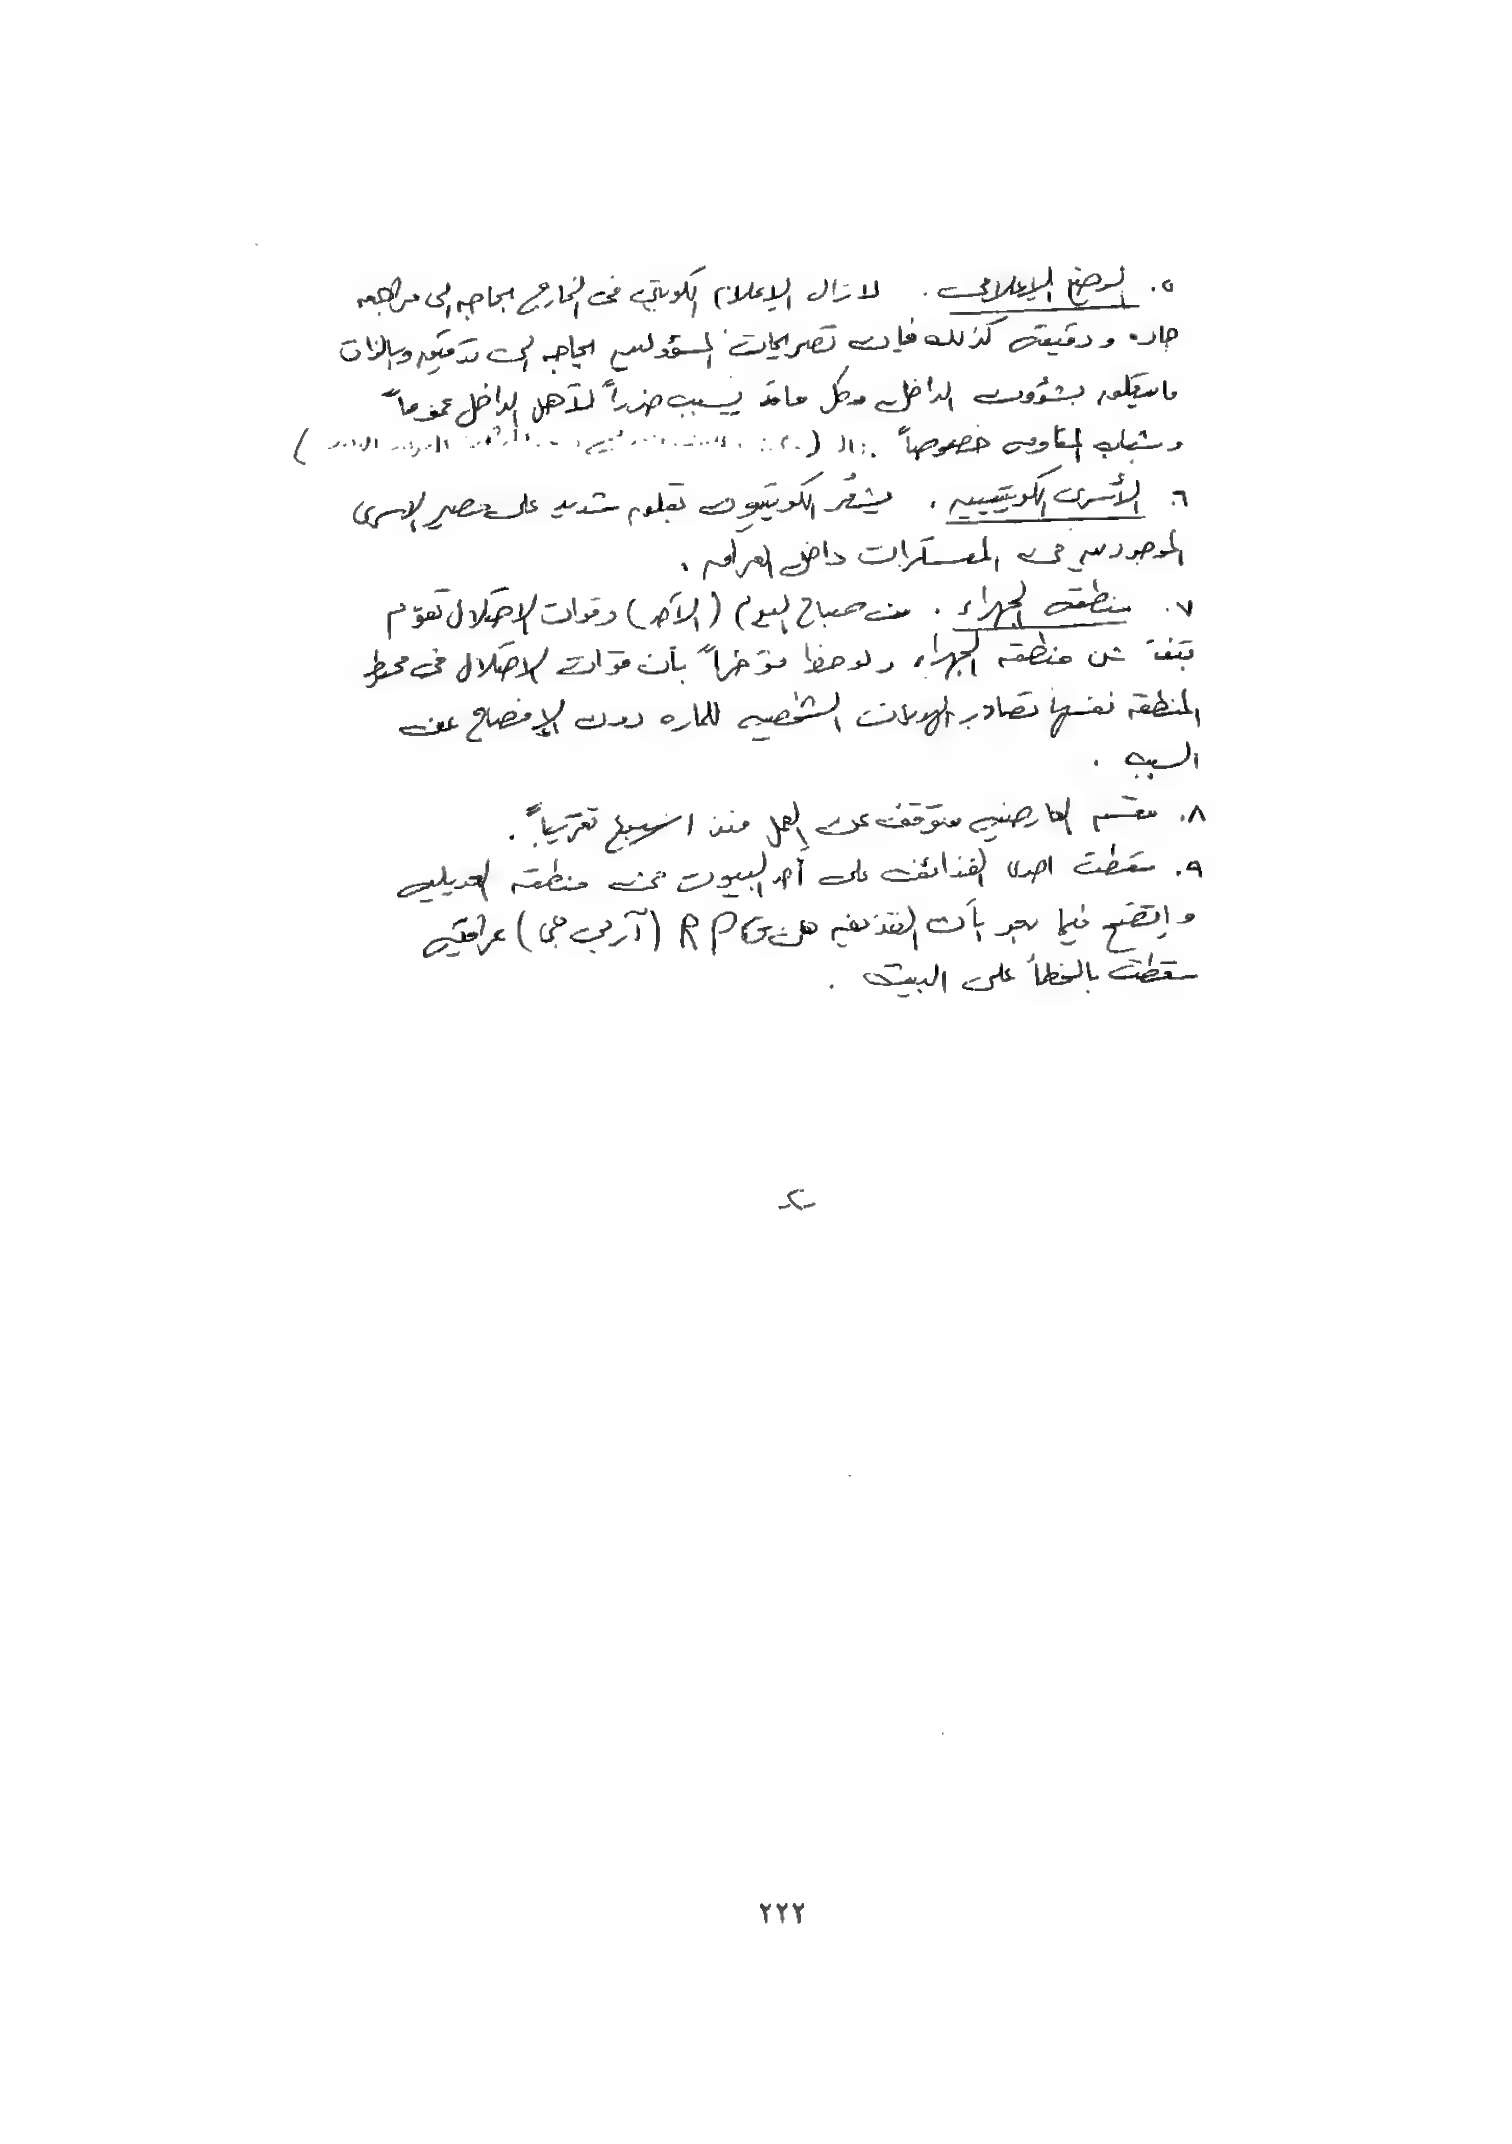 ٥. الوضع الإعلامي . لا زال الإعلام الكويتي في الخارج بحاجه الى مراجعه
جاده ودقيقة كذلك فإن تصريحات المسؤولين بحاجه الى تدقيق وبالذات
ما يتعلق بشؤون الداخل وكل ما قد يسبب ضرراً لأهل الداخل عموماً
وشباب المقاومه خصوصاً .
٦. الأسرى الكويتيين . يشعر الكويتيون بقلق شديد على مصير الاسرى
الموجودين في المعسكرات داخل العراق .
٧. منطقة الجهراء . من صباح اليوم (الأحد) وقوات الاحتلال تقوم
بتفتيش منطقة الجهراء ولوحظ مؤخراً بأن قوات الاحتلال في محيط
المنطقه نفسها تصادر الهويات الشخصيه للماره دون الإفصاح عن
السبب .
٨. مقسم العارضيه متوقف عن العمل منذ اسبوع تقريباً .
٩. سقطت احدى القذائف على أحد البيوت في منطقة العديليه
واتضح فيما بعد بأن القذيفه من RPG (آر بي جي) عراقيه
سقطت بالخطأ على البيت .
٢٢٢